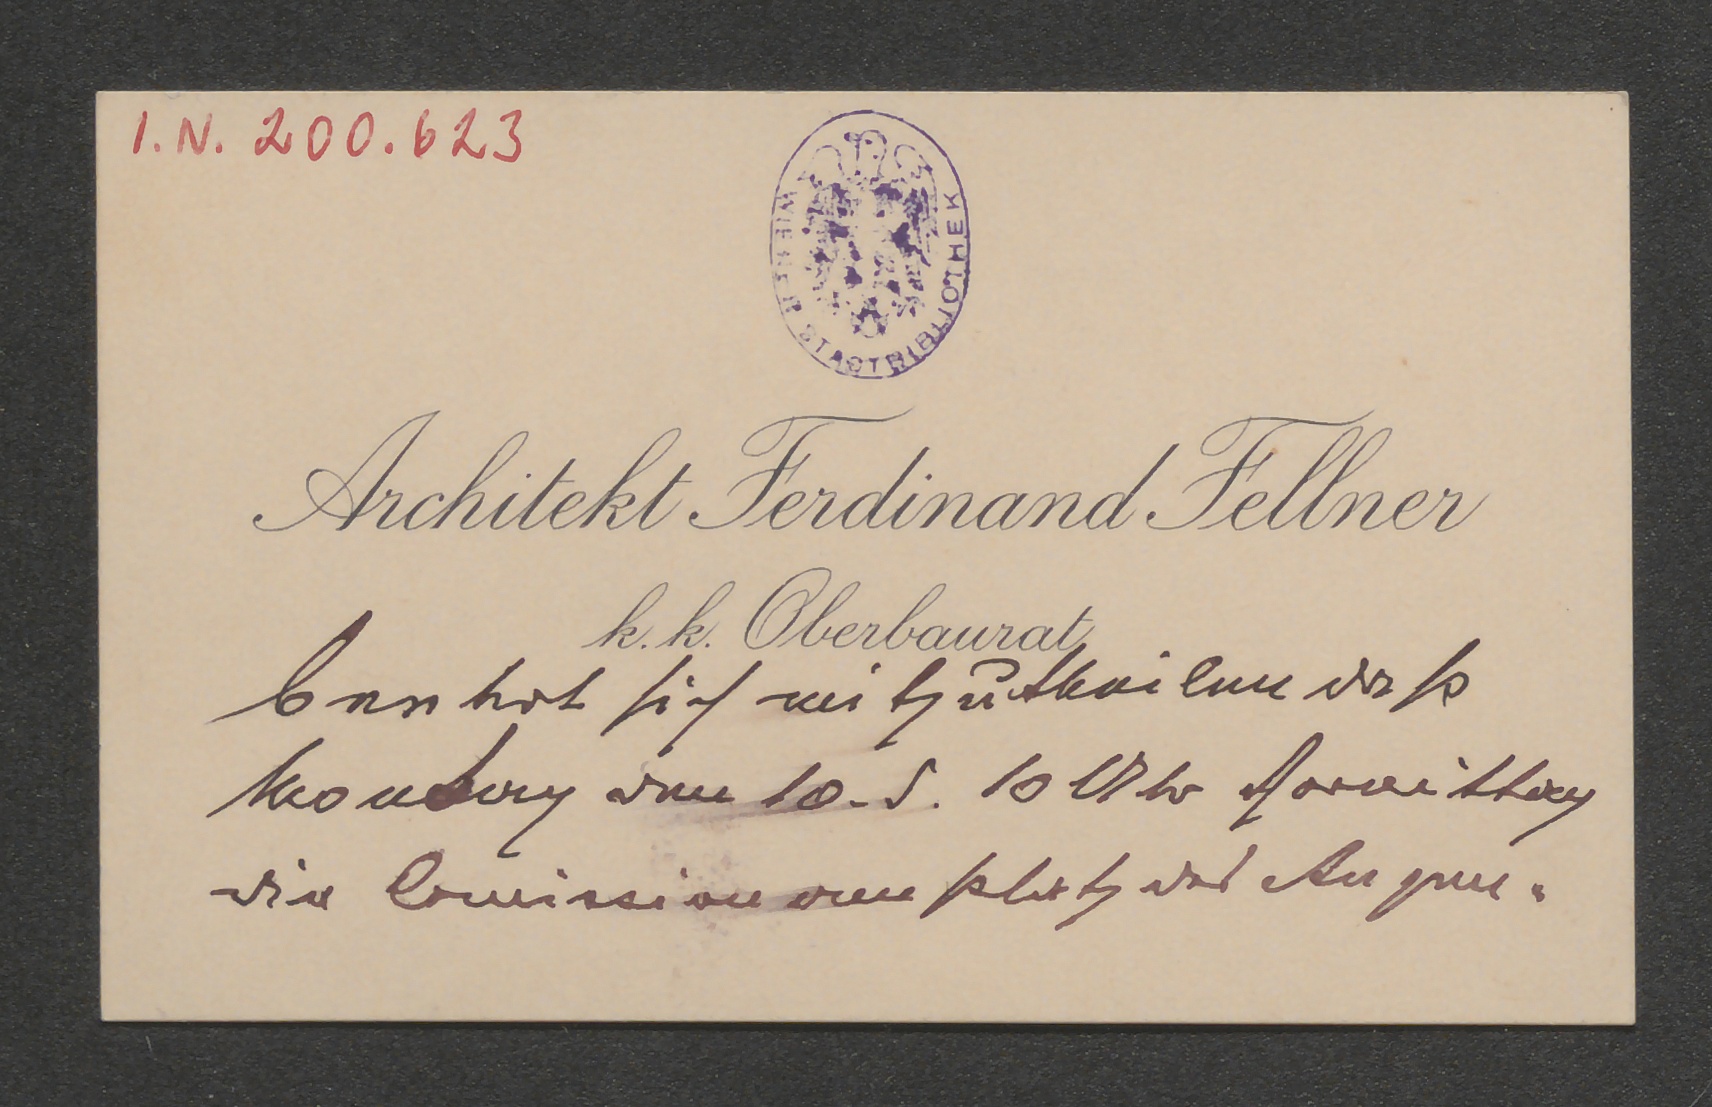 I.N. 200.623
WIENER STADTBIBLIOTHEK
Architekt Ferdinand Fellner
k. k. Oberbaurat
beehrt sich mitzutheilen daß
Montag den 10. d. 10 Uhr Vormittag
die Comission am Platz des